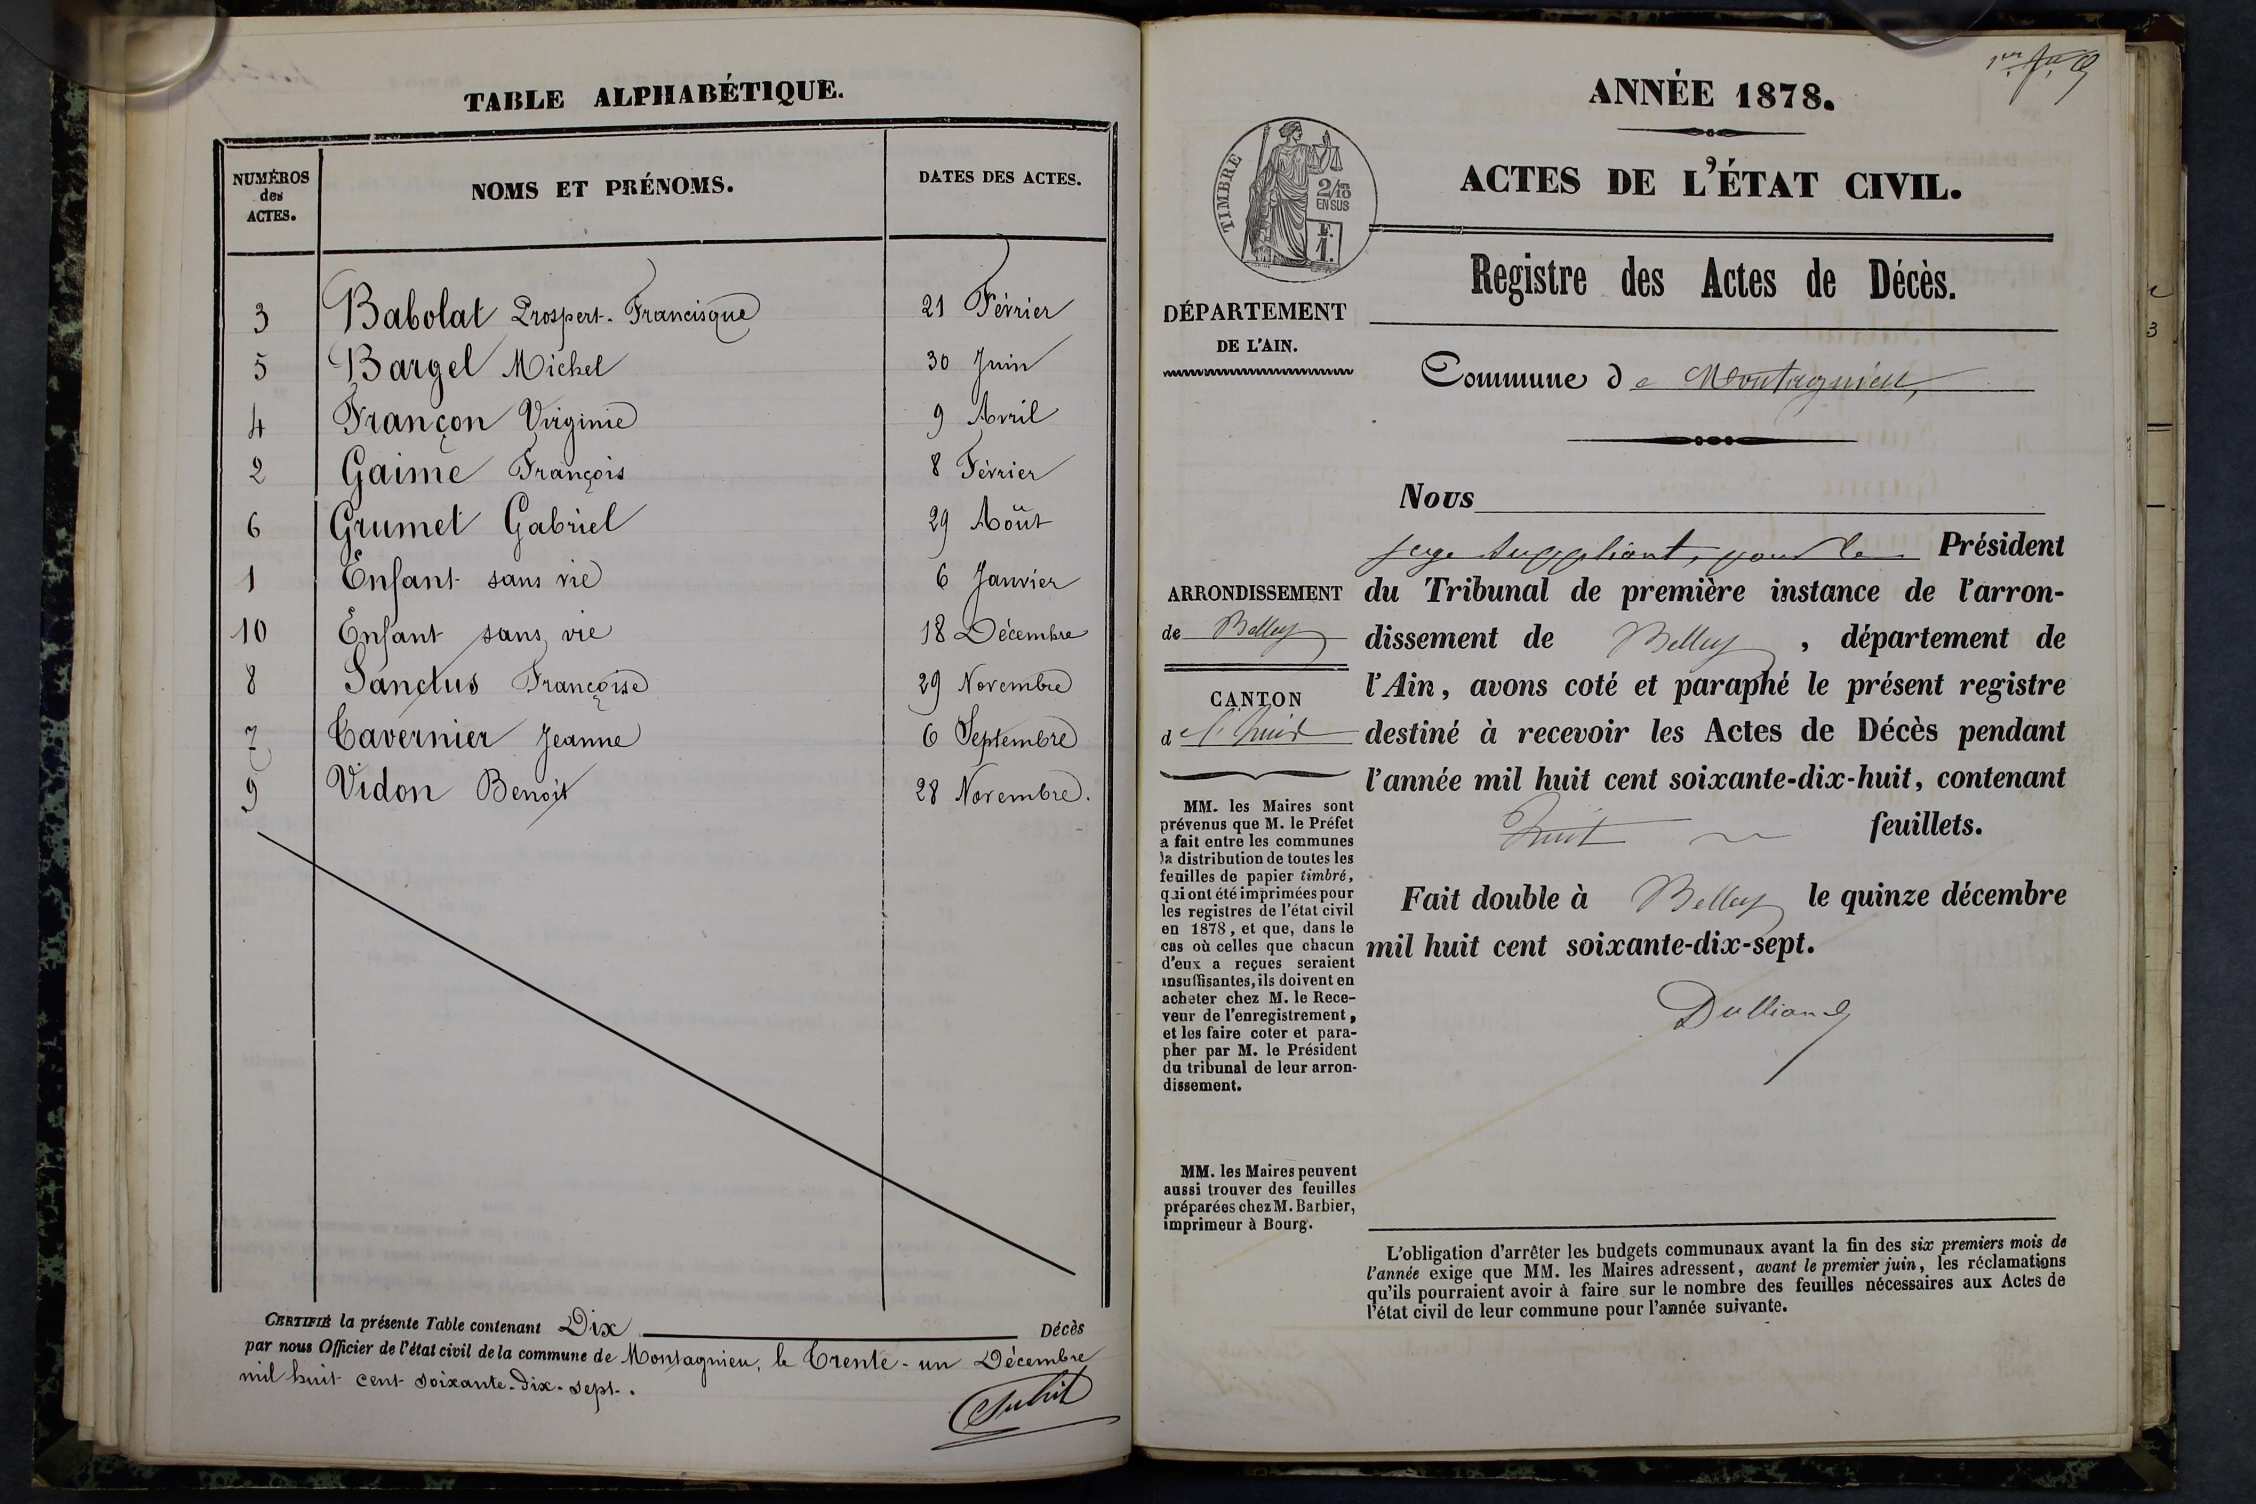 TABLE ALPHABÉTIQUE.
NUMÉROS
des
ACTES.
NOMS ET PRÉNOMS.
DATES DES ACTES.
3 Babolat Prospert-Francisque 21 Février
5 Bargel Michel 30 Juin
4 Françon Virginie 9 Avril
2 Gaime François 8 Février
6 Grumet Gabriel 29 Août
1 Enfant sans vie 6 Janvier
10 Enfant sans vie 18 Décembre
8 Sanctus Françoise 29 Novembre
7 Tavernier Jeanne 6 Septembre
9 Vidon Benoit 28 Novembre.
CERTIFIÉ la présente Table contenant Dix Décès
par nous Officier de l'état civil de la commune de Montagnieu, le Trente-un Décembre
mil huit cent soixante-dix-sept.
ANNÉE 1878.
ACTES DE L'ÉTAT CIVIL.
TIMBRE
2/10
EN SUS
F.
1.
Registre des Actes de Décès.
DÉPARTEMENT
DE L'AIN.
Commune de Montagnieu,
Nous
juge suppléant, pour le Président
du Tribunal de première instance de l'arron-
dissement de Belley, département de
l'Ain, avons coté et paraphé le présent registre
destiné à recevoir les Actes de Décès pendant
l'année mil huit cent soixante-dix-huit, contenant
huit feuillets.
Fait double à Belley le quinze décembre
mil huit cent soixante-dix-sept.
Dulliand
ARRONDISSEMENT
de Belley
CANTON
d
MM. les Maires sont
prévenus que M. le Préfet
a fait entre les communes
la distribution de toutes les
feuilles de papier timbré,
qui ont été imprimées pour
les registres de l'état civil
en 1878, et que, dans le
cas où celles que chacun
d'eux a reçues seraient
insuffisantes, ils doivent en
acheter chez M. le Rece-
veur de l'enregistrement,
et les faire coter et para-
pher par M. le Président
du tribunal de leur arron-
dissement.
MM. les Maires peuvent
aussi trouver des feuilles
préparées chez M. Barbier,
imprimeur à Bourg.
L'obligation d'arrêter les budgets communaux avant la fin des six premiers mois de
l'année exige que MM. les Maires adressent, avant le premier juin, les réclamations
qu'ils pourraient avoir à faire sur le nombre des feuilles nécessaires aux Actes de
l'état civil de leur commune pour l'année suivante.